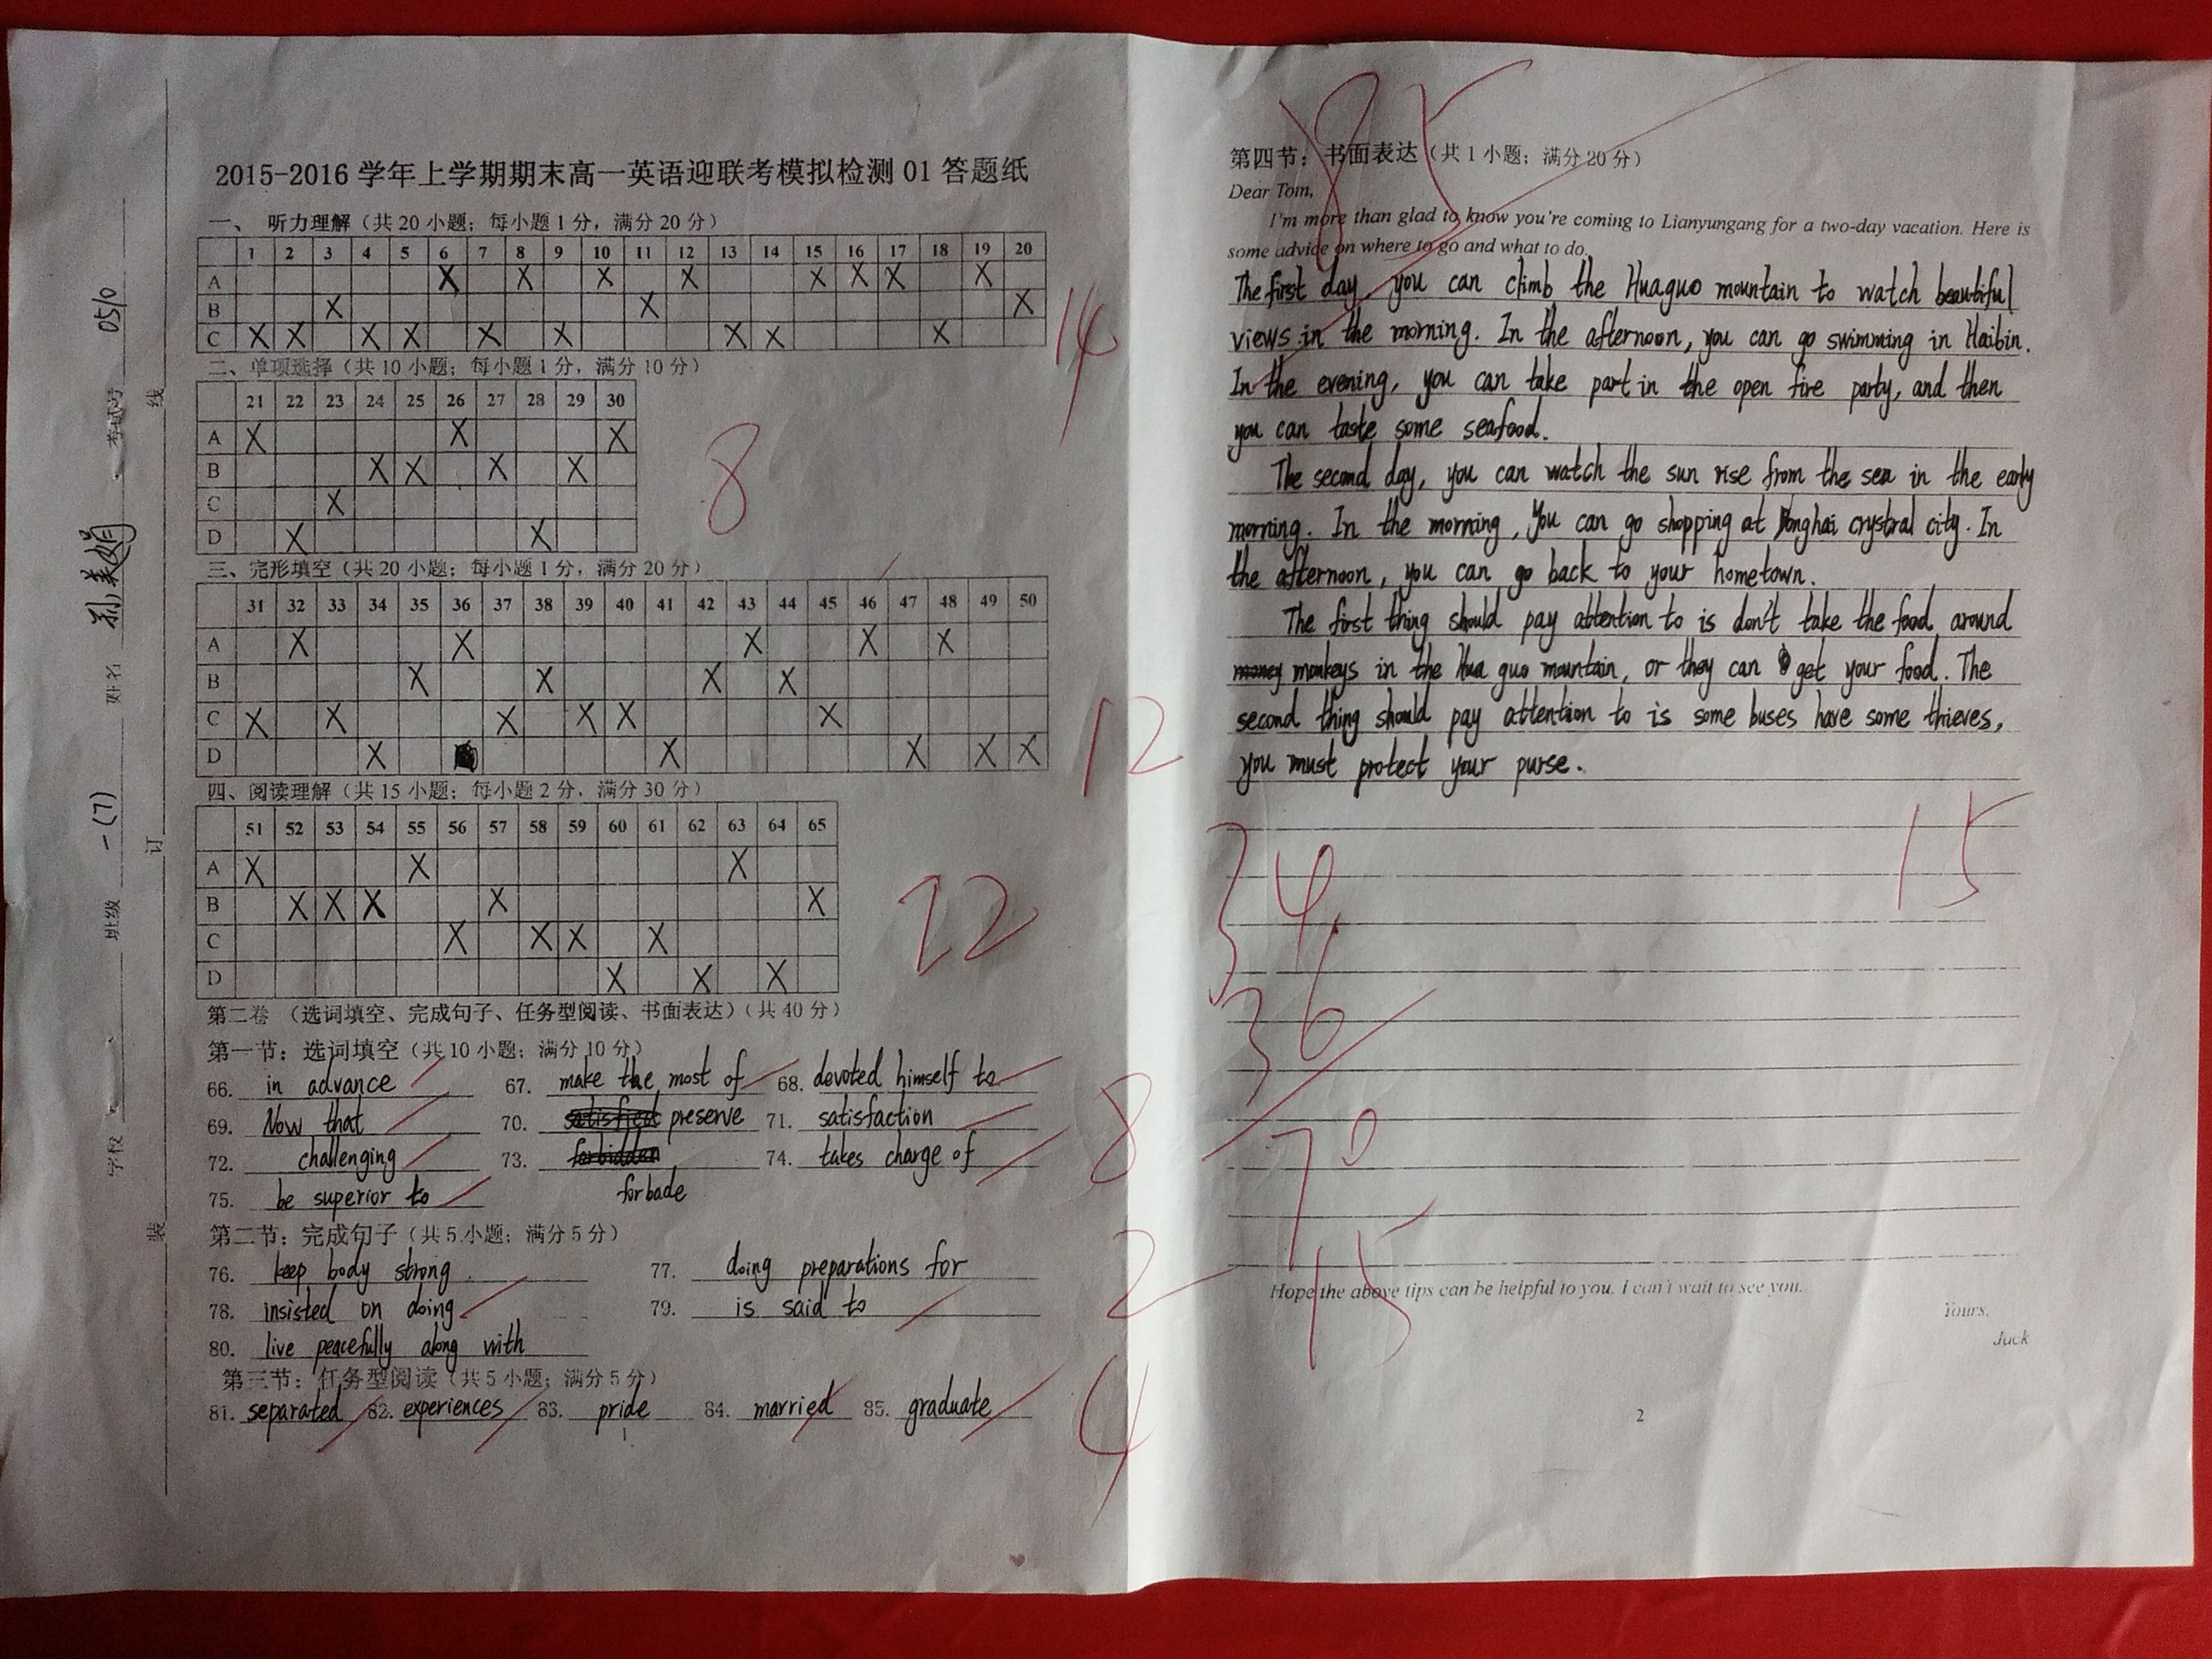 2015-2016 学年上学期期末高一英语迎联考模拟检测 01 答题纸
一、 听力理解（共 20 小题；每小题 1 分，满分 20 分）
1 2 3 4 5 6 7 8 9 10 11 12 13 14 15 16 17 18 19 20
A X X X X X X X X
B X X X
C X X X X X X X X X
14
二、单项选择（共 10 小题；每小题 1 分，满分 10 分）
21 22 23 24 25 26 27 28 29 30
A X X X
B X X X X
C X
D X X
8
三、完形填空（共 20 小题；每小题 1 分，满分 20 分）
31 32 33 34 35 36 37 38 39 40 41 42 43 44 45 46 47 48 49 50
A X X X X X
B X X X X
C X X X X X X
D X X X X X
12
四、阅读理解（共 15 小题；每小题 2 分，满分 30 分）
51 52 53 54 55 56 57 58 59 60 61 62 63 64 65
A X X X
B X X X X X
C X X X X
D X X X
22
第二卷 （选词填空、完成句子、任务型阅读、书面表达）（共 40 分）
第一节：选词填空（共 10 小题；满分 10 分）
66. in advance 67. make the most of 68. devoted himself to
69. Now that 70. satisfied preserve 71. satisfaction
72. challenging 73. forbidden 74. takes charge of
75. be superior to forbade
8
第二节：完成句子（共 5 小题；满分 5 分）
76. keep body strong 77. doing preparations for
78. insisted on doing 79. is said to
80. live peacefully along with
2
第三节：任务型阅读（共 5 小题；满分 5 分）
81. separated 82. experiences 83. pride 84. married 85. graduate
4
1
学校 班级 一(7) 姓名 孙美娟 考试号 0510
装 订 线
85
第四节：书面表达（共 1 小题；满分 20 分）
Dear Tom,
I'm more than glad to know you're coming to Lianyungang for a two-day vacation. Here is
some advice on where to go and what to do.
The first day, you can climb the Huaguo mountain to watch beautiful
views in the morning. In the afternoon, you can go swimming in Haibin.
In the evening, you can take part in the open fire party, and then
you can taste some seafood.
The second day, you can watch the sun rise from the sea in the early
morning. In the morning, you can go shopping at Donghai crystral city. In
the afternoon, you can go back to your hometown.
The first thing should pay attention to is don't take the food around
money monkeys in the Hua guo mountain, or they can get your food. The
second thing should pay attention to is some buses have some thieves,
you must protect your purse.
15
34
36
70
15
Hope the above tips can be helpful to you. I can't wait to see you.
Yours,
Jack
2